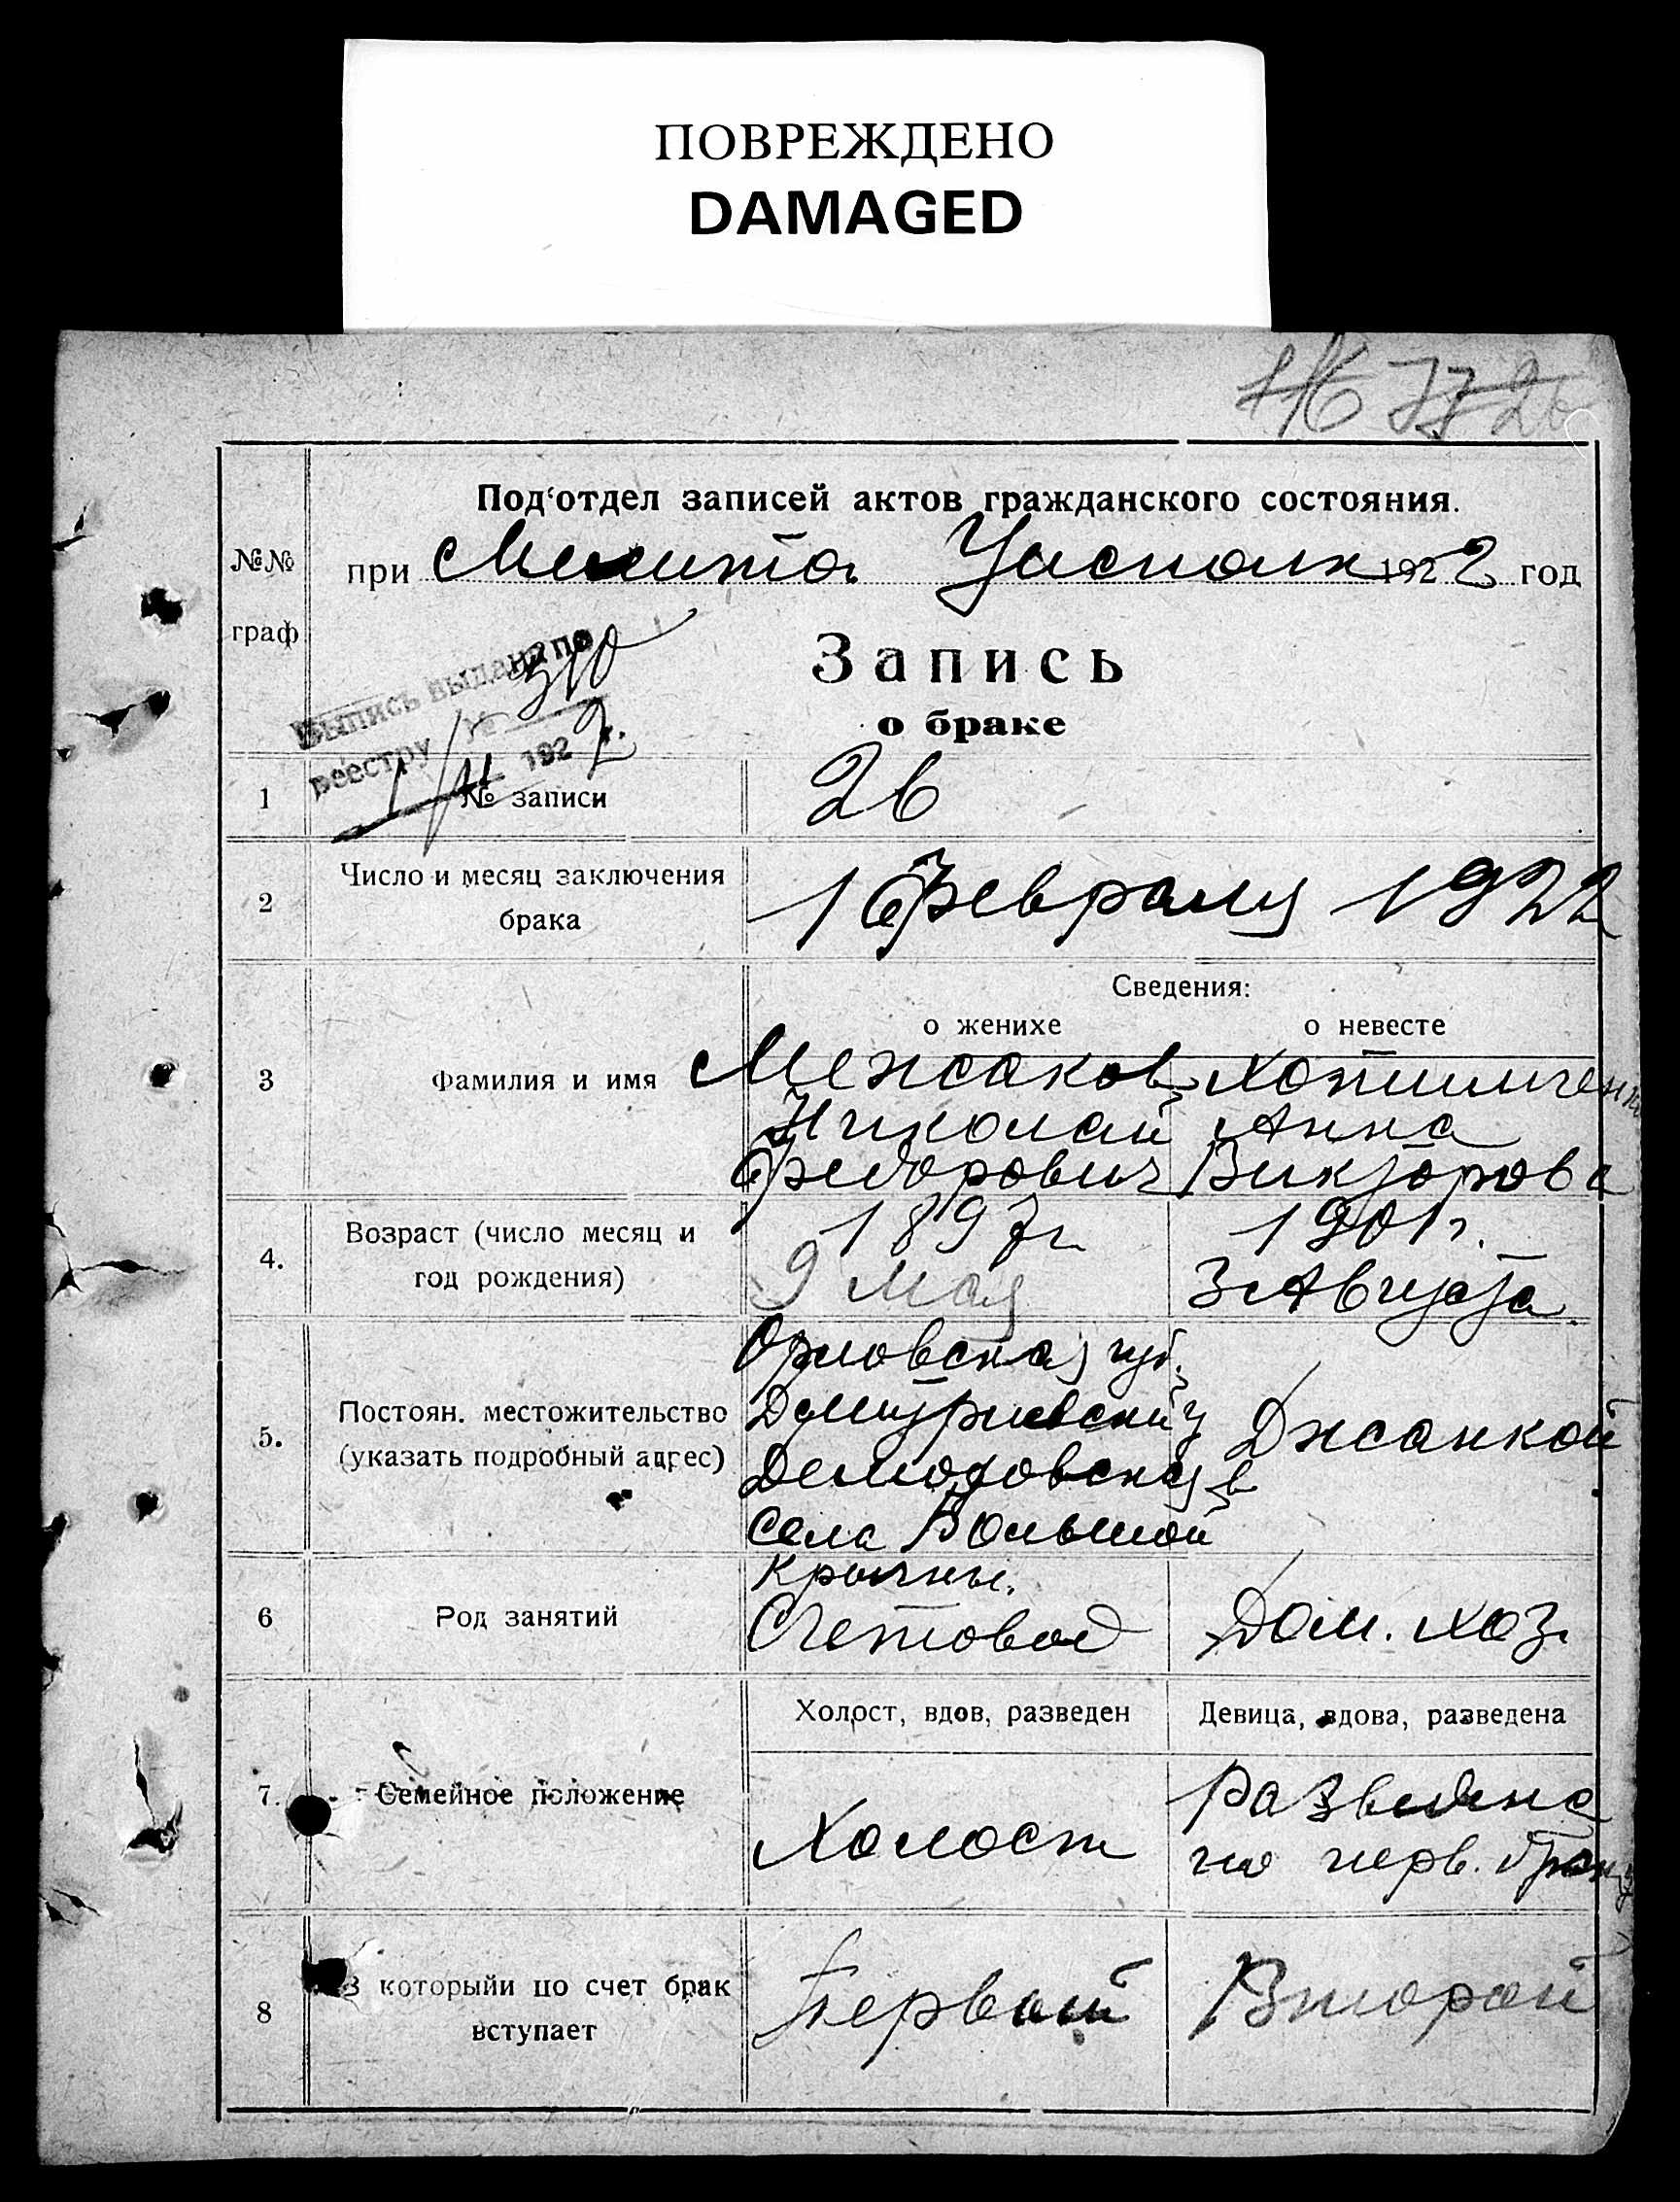 ПОВРЕЖДЕНО
DAMAGED
Под‘отдел записей актов гражданского состояния.
№№
граф
при Мелито Уисполк 1922 год
Выпись выдана по
реестру № 310
1/II 1922 г.
Запись
о браке
1 № записи 26
2 Число и месяц заключения брака 1 Февраля 1922
Сведения:
о женихе о невесте
3 Фамилия и имя
Менсаков
Николай
Федорович
Анна
Викторовна
4. Возраст (число месяц и год рождения)
1897 г.
9 мая
1901 г.
3 Августа
5. Постоян. местожительство (указать подробный адрес)
Орловская губ.
Дмитриевский у
села Большой
Джанкой
6 Род занятий
Счетовод
Дом. хоз.
Холост, вдов, разведен
Девица, вдова, разведена
7. Семейное положение
Холост
Разведена
по перв. браку
8 В которыйи по счет брак вступает
Первый
Второй